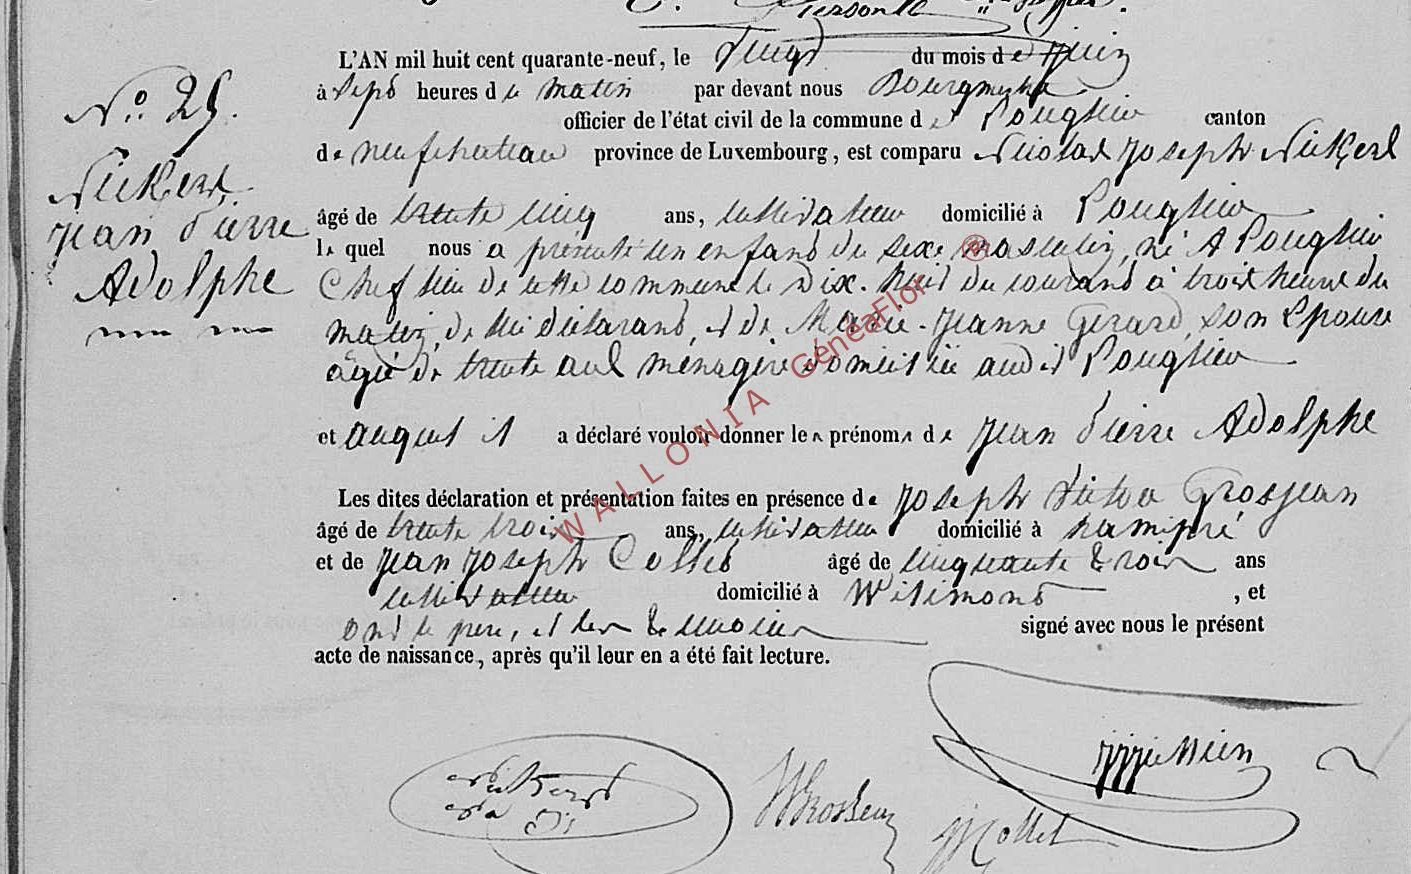 L'AN mil huit cent quarante-neuf, le vingt du mois de Juin
à Sept heures du matin par devant nous Bourgmestre
officier de l'état civil de la commune de canton
de neufchateau province de Luxembourg, est comparu Nicolas Joseph Nickers
N.o 25.
Nickers,
Jean Pierre
Adolphe
âgé de trente cinq ans, cultivateur domicilié à
lequel nous a présenté un enfant du sexe masculin, né A
Chef lieu de cette commune le Dix-huit du courant à trois heure du
matin, de lui déclarant, et de Marie-Jeanne Gerard, son Epouse
agée de trente ans ménagère domiciliée audit
et auquel il a déclaré vouloir donner les prénoms de Jean Pierre Adolphe
Les dites déclaration et présentation faites en présence de Joseph Victor Grosjean
âgé de trente trois ans, cultivateur domicilié à
et de Jean Joseph Collet âgé de cinquante trois ans
cultivateur domicilié à Witimont , et
ont le pere, et les témoins signé avec nous le présent
acte de naissance, après qu'il leur en a été fait lecture.
WALLONIA GénéaFlor ®
JJCollet